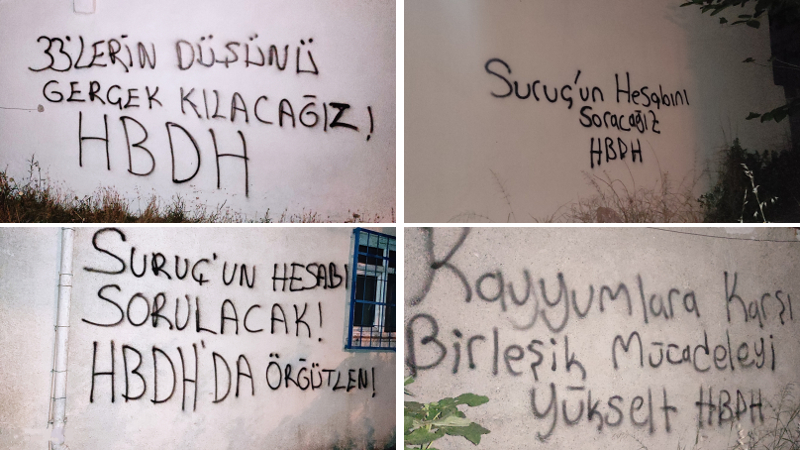 33'LERİN DÜŞÜNÜ
GERÇEK KILACAĞIZ!
HBDH
Suruç'un Hesabını
Soracağız
HBDH
SURUÇ'UN HESABI
SORULACAK!
HBDH'DA ÖRGÜTLEN!
Kayyumlara Karşı
Birleşik Mücadeleyi
Yükselt HBDH